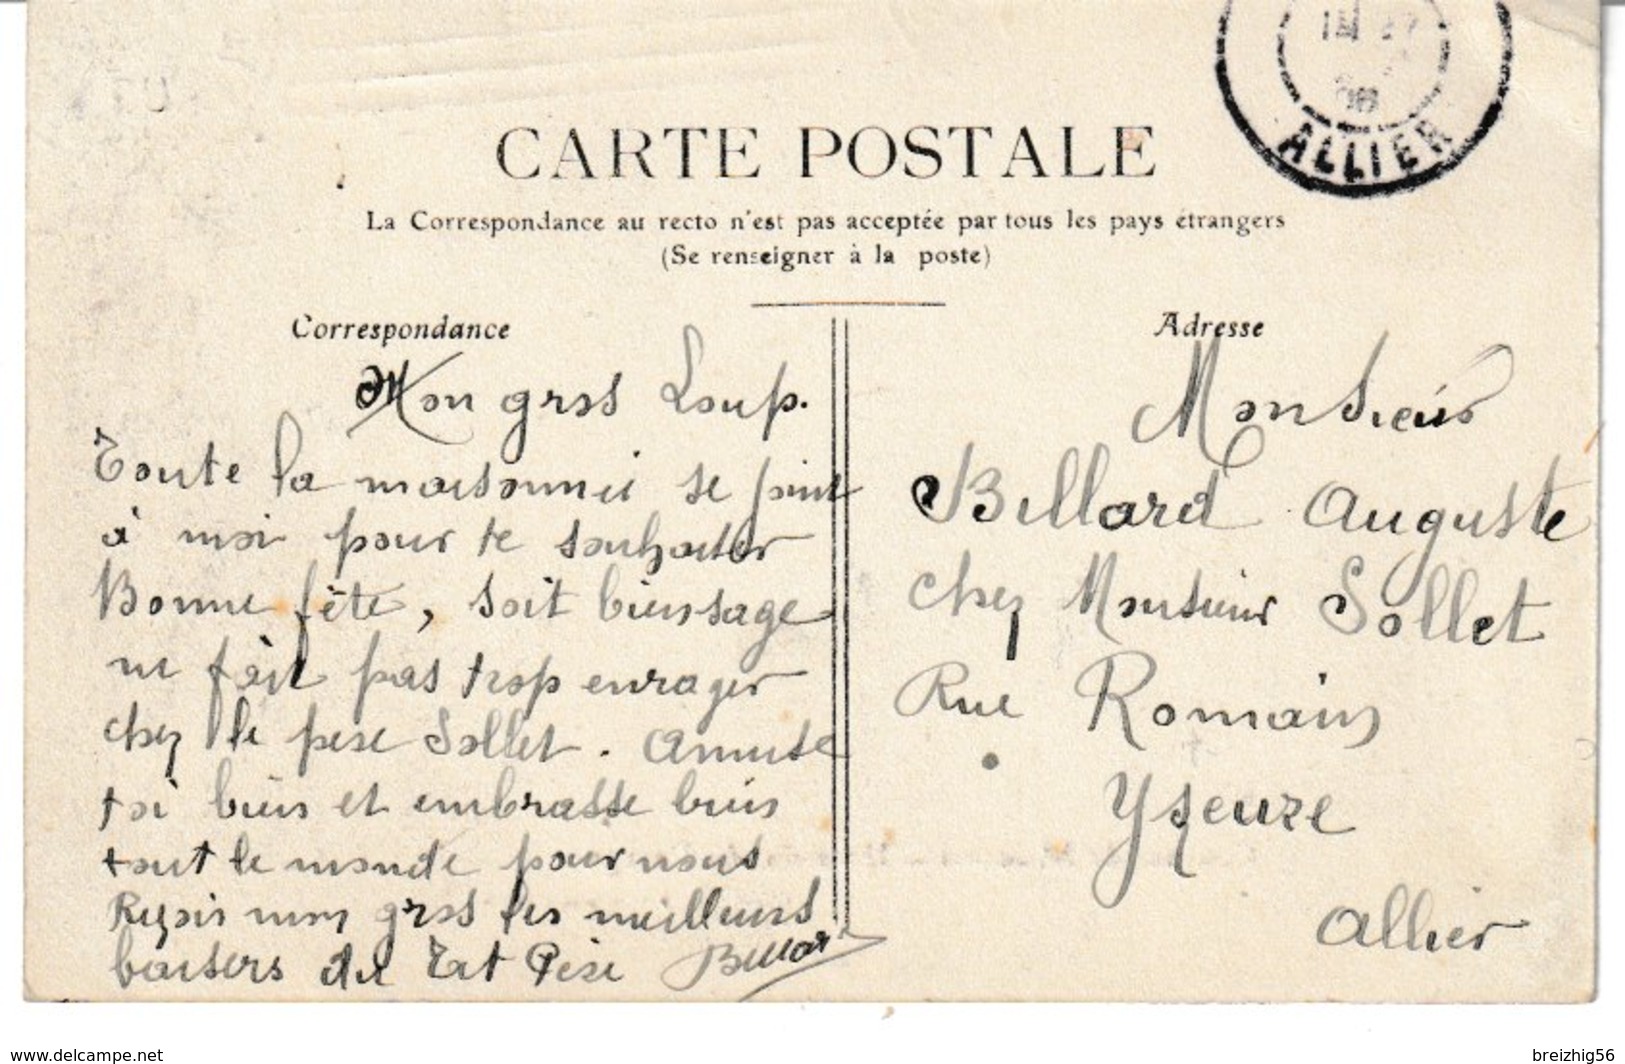 CARTE POSTALE
La Correspondance au recto n'est pas acceptée par tous les pays étrangers
(Se renseigner à la poste)
Correspondance
Mon gros Loup.
Toute la maisonnée se joint
à moi pour te souhaiter
Bonne fête, soit bien sage
ne fait pas trop enrager
chez le père Sollet. Amuse
toi bien et embrasse bien
tout le monde pour nous
Reçois mon gros les meilleurs
baisers de Tat Père Billard
Adresse
Monsieur
Billard Auguste
chez Monsieur Sollet
Rue Romain
Yzeure
Allier
ALLIER
www.delcampe.net
breizhig56